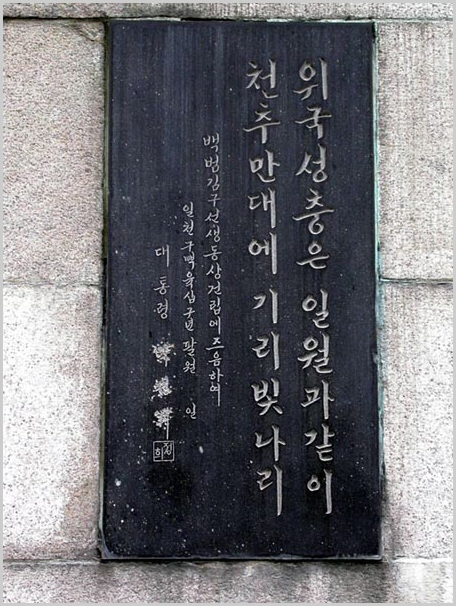 위국성충은 일월과같이
천추만대에 기리빛나리
백범김구선생동상건립에즈음하여
일천구백육십구년 팔월 일
대통령
정희